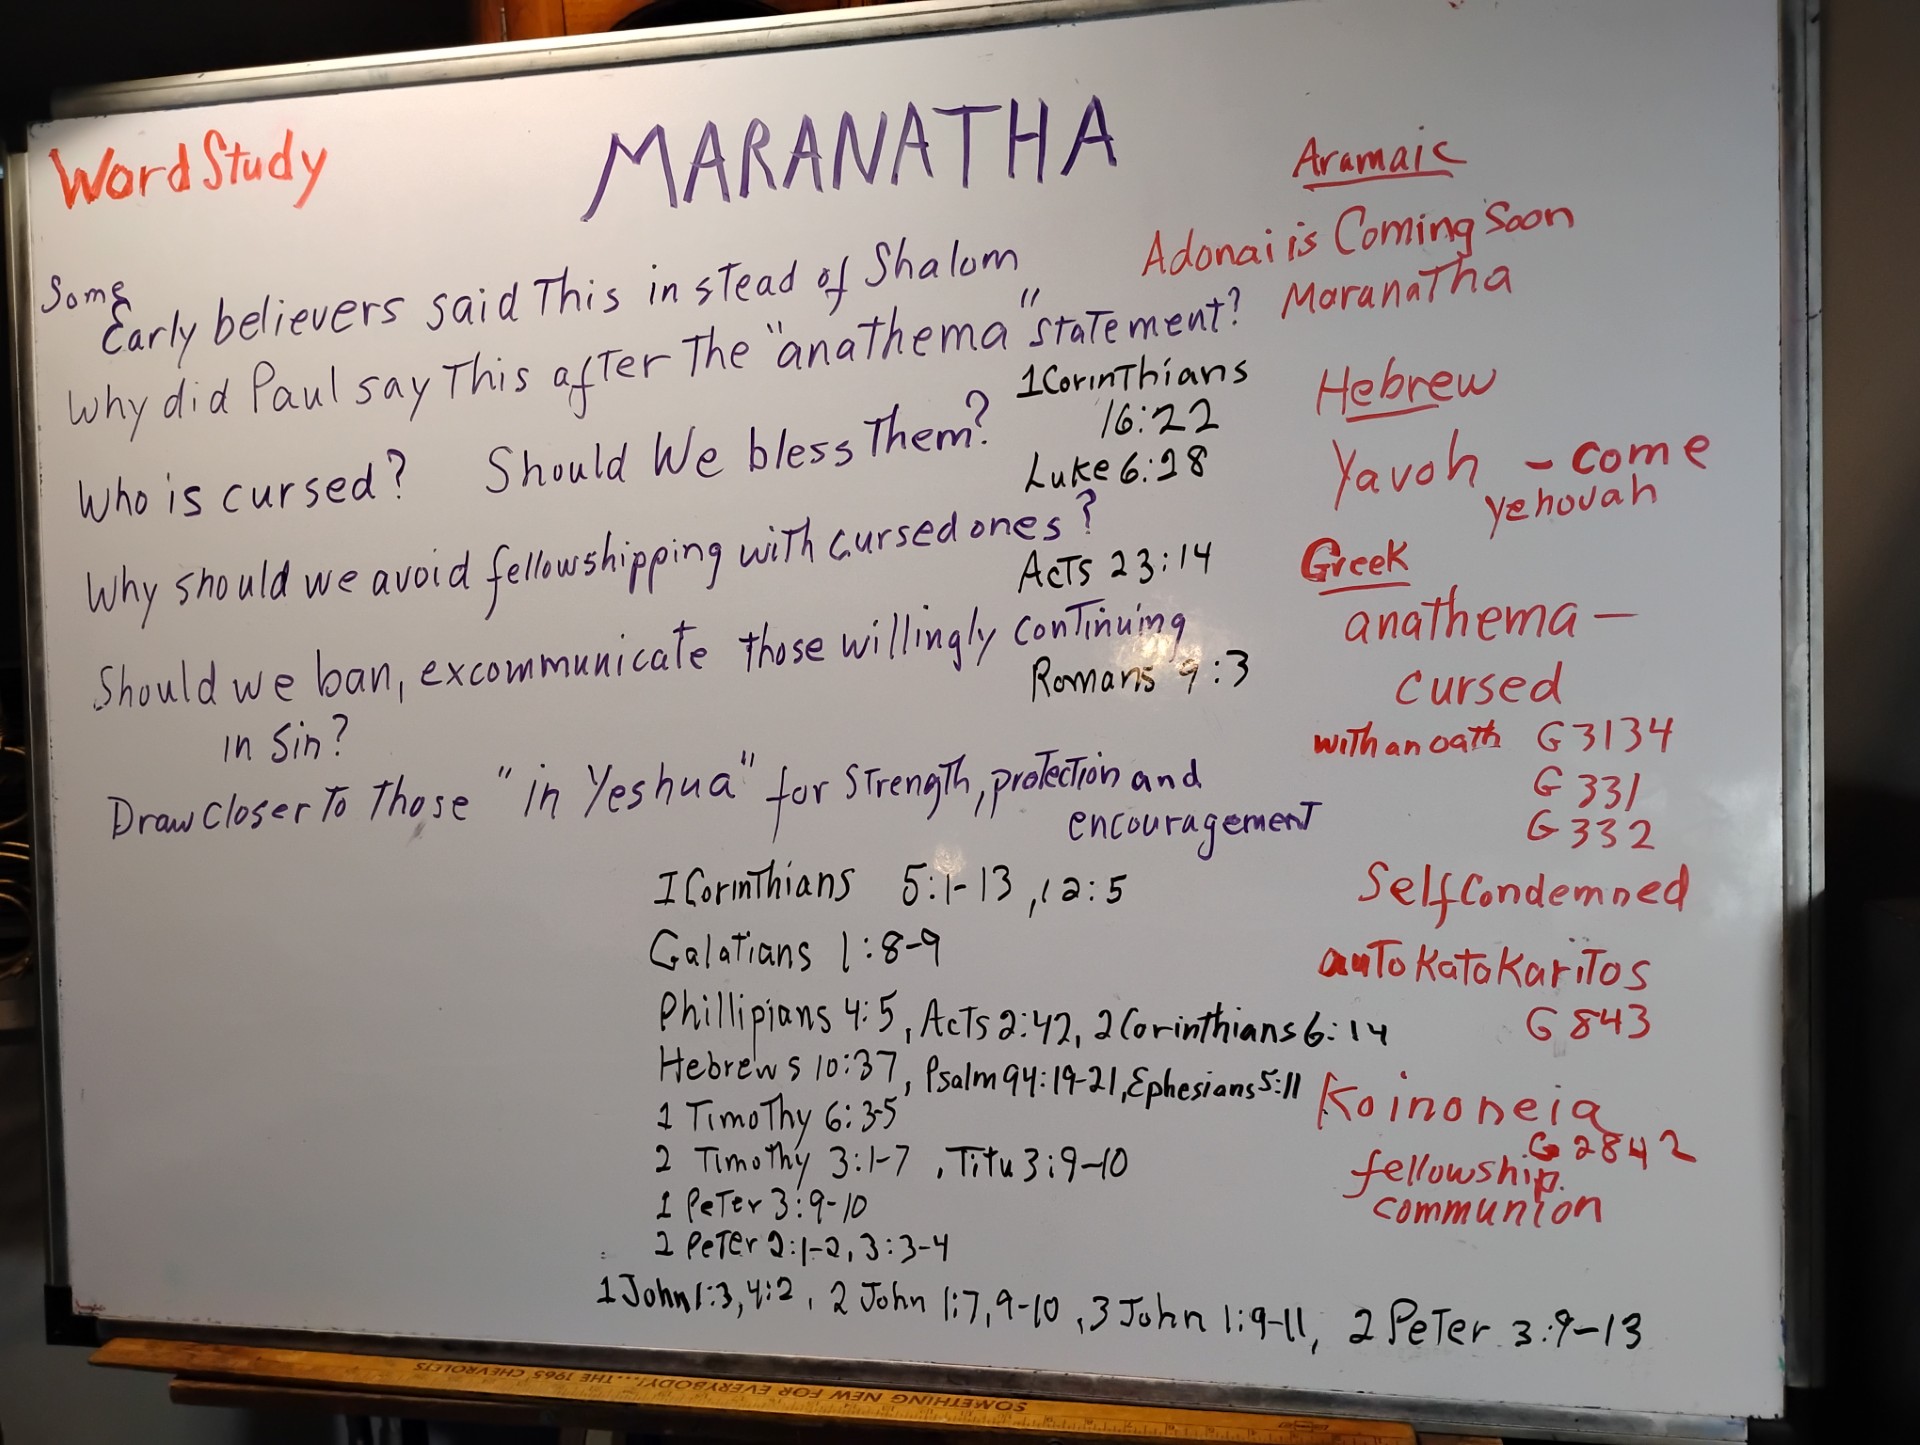 Word Study
MARANATHA
Some
Early believers said This instead of Shalom
Why did Paul say This after The "anathema" statement?
1 Corinthians
16:22
Who is cursed? Should We bless Them?
Luke 6:28
Why should we avoid fellowshipping with cursed ones?
Acts 23:14
Should we ban, excommunicate those willingly continuing
in Sin?
Romans 9:3
Draw closer To Those "in Yeshua" for Strength, protection and
encouragement
I Corinthians 5:1-13, 12:5
Galatians 1:8-9
Phillipians 4:5, Acts 2:42, 2 Corinthians 6:14
Hebrews 10:37, Psalm 94:19-21, Ephesians 5:11
1 Timothy 6:3-5
2 Timothy 3:1-7, Titu 3:9-10
1 Peter 3:9-10
2 Peter 2:1-2, 3:3-4
1 John 1:3, 4:2, 2 John 1:7, 9-10, 3 John 1:9-11, 2 Peter 3:9-13
Aramaic
Adonai is Coming Soon
Maranatha
Hebrew
Yavoh - come
Yehovah
Greek
anathema -
cursed
with an oath G3134
G 331
G 332
Self Condemned
autokatakaritos
G 843
Koinoneia
G 2842
fellowship.
communion
SOMETHING NEW FOR EVERYBODY!...THE 1965 CHEVROLETS